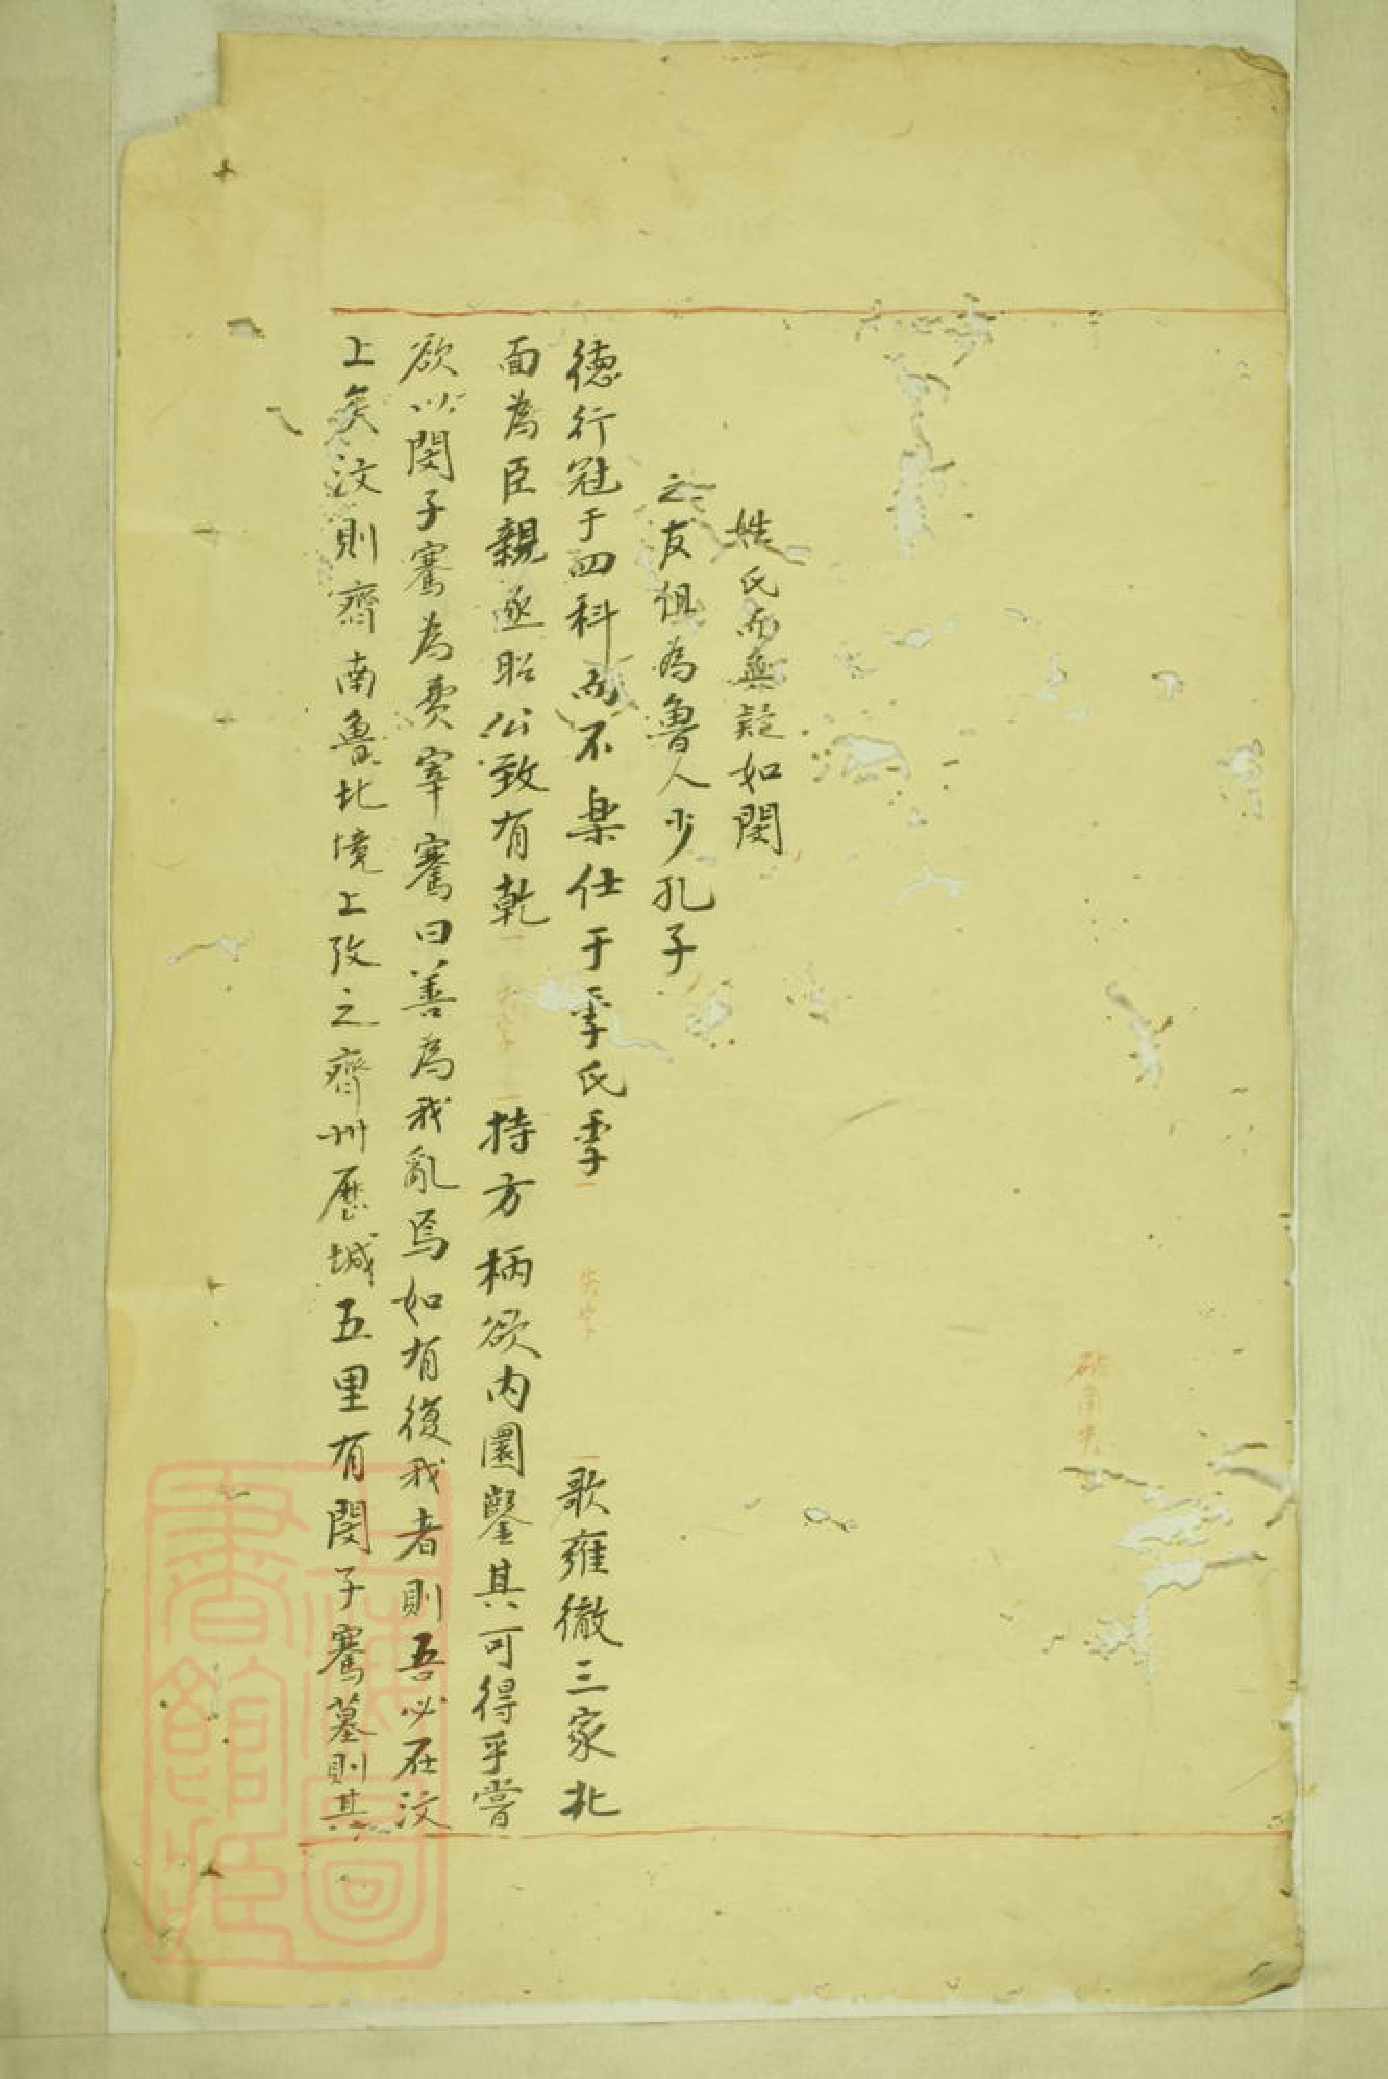 姓氏而無疑如閔
之友俱為魯人少孔子
德行冠于四科而不楽仕于季氏季 失字 歌雍徹三家北
面為臣親逐昭公致有乾 失字 持方柄欲内圜鑿其可得乎嘗
欲以閔子騫為費宰騫曰善為我亂焉如有復我者則吾必在汶
上矣汶則齊南魯北境上攷之齊州歷城五里有閔子騫墓則其
上海圖書館